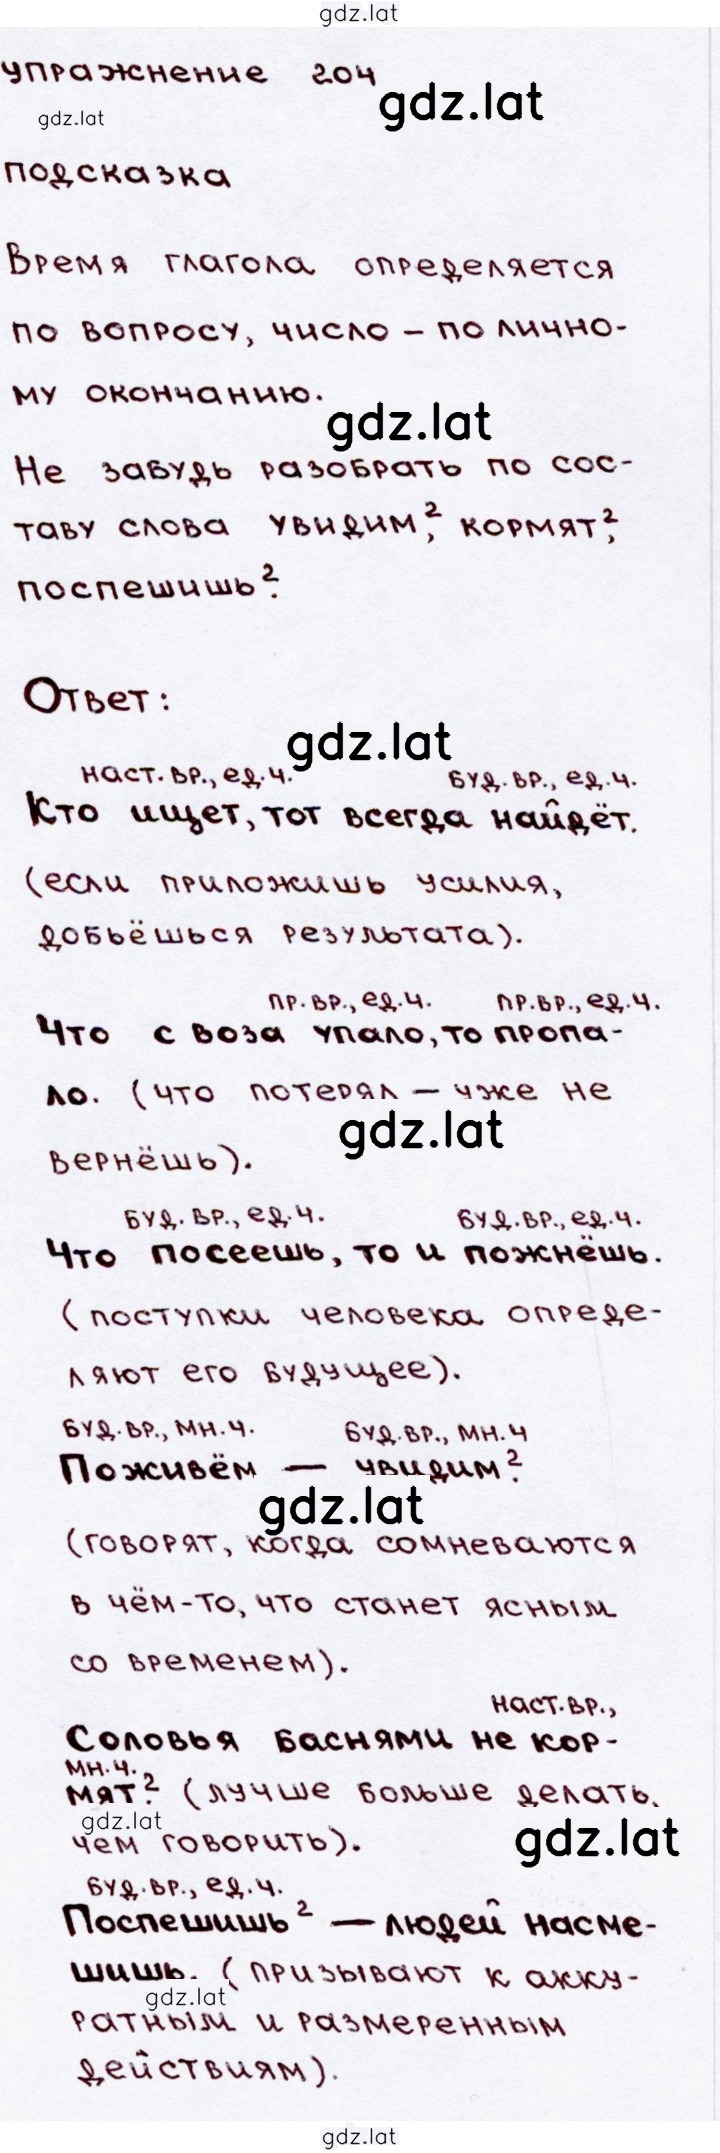 gdz.lat
упражнение 204
gdz.lat
gdz.lat
подсказка
Время глагола определяется
по вопросу, число – по лично-
му окончанию.
gdz.lat
Не забудь разобрать по сос-
таву слова увидим,² кормят,²
поспешишь².
Ответ:
gdz.lat
наст. вр., ед.ч. буд. вр., ед.ч.
Кто ищет, тот всегда найдёт.
(если приложишь усилия,
добьёшься результата).
пр. вр., ед.ч. пр.вр., ед.ч.
Что с воза упало, то пропа-
ло. (что потерял – уже не
gdz.lat
вернёшь).
буд. вр., ед.ч. буд.вр., ед.ч.
Что посеешь, то и пожнёшь.
(поступки человека опреде-
ляют его будущее).
буд.вр., мн.ч. буд.вр., мн.ч
Поживём – увидим².
gdz.lat
(говорят, когда сомневаются
в чём-то, что станет ясным
со временем).
наст.вр.,
Соловья баснями не кор-
мн.ч.
мят.² (лучше больше делать,
gdz.lat
чем говорить).
gdz.lat
буд.вр., ед.ч.
Поспешишь² – людей насме-
шишь. (призывают к акку-
gdz.lat
ратным и размеренным
действиям).
gdz.lat